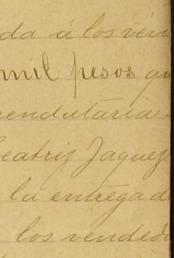 da á los ven
mil pesos qu
rendataria
Beatriz Jaquez
la entrega de
los vendedo